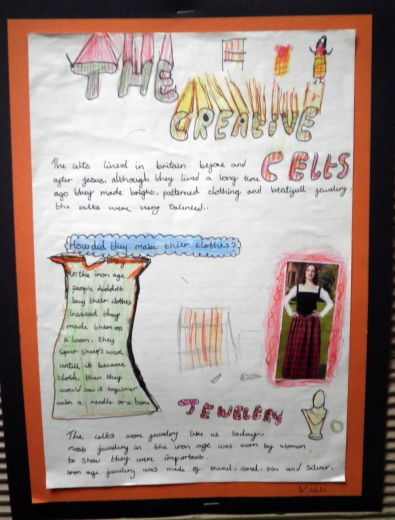 THE
CREATIVE
CELTS
The celts lived in britain before and
after jesus, although they lived a long time
ago they made bright, patterned clothing and beatyull jewelery.
the celts were very talented..
How did they make their clothes?
In the iron age
people diddent
buy their clothes
instead they
made them on
a loom, they
spun sheep's wool
untill it became
cloth, then they
would sow it together
with a needle or a bone
JEWELERY
The celts wore jewelery like us today,
most jewelery in the iron age was worn by women
to show they were important.
iron age jewelery was made of coral, and silver.